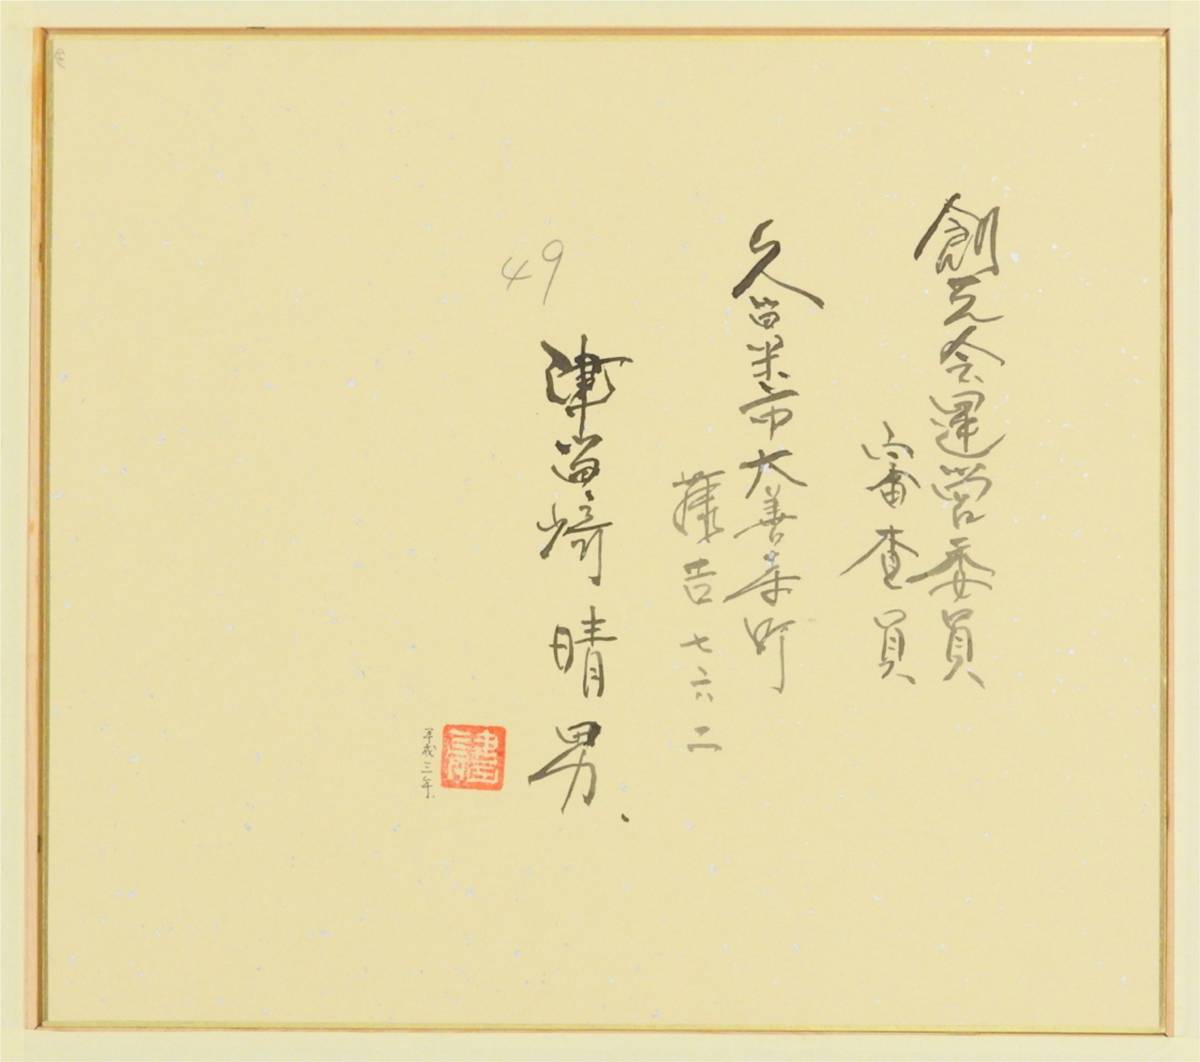 創元会運営委員
審査員
久留米市大善寺町
藤吉七六二
津留崎晴男、
49
平成三年.